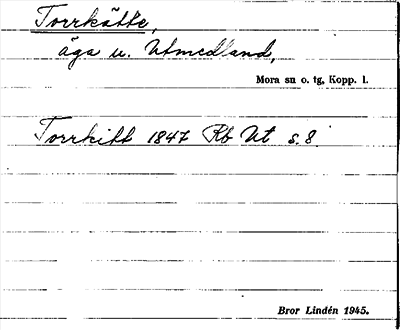 Torrkätte,
äga u. Utmedland,
Mora sn o. tg, Kopp. l.
Torrkitt 1847 Rb Ut s. 8
Bror Lindén 1945.